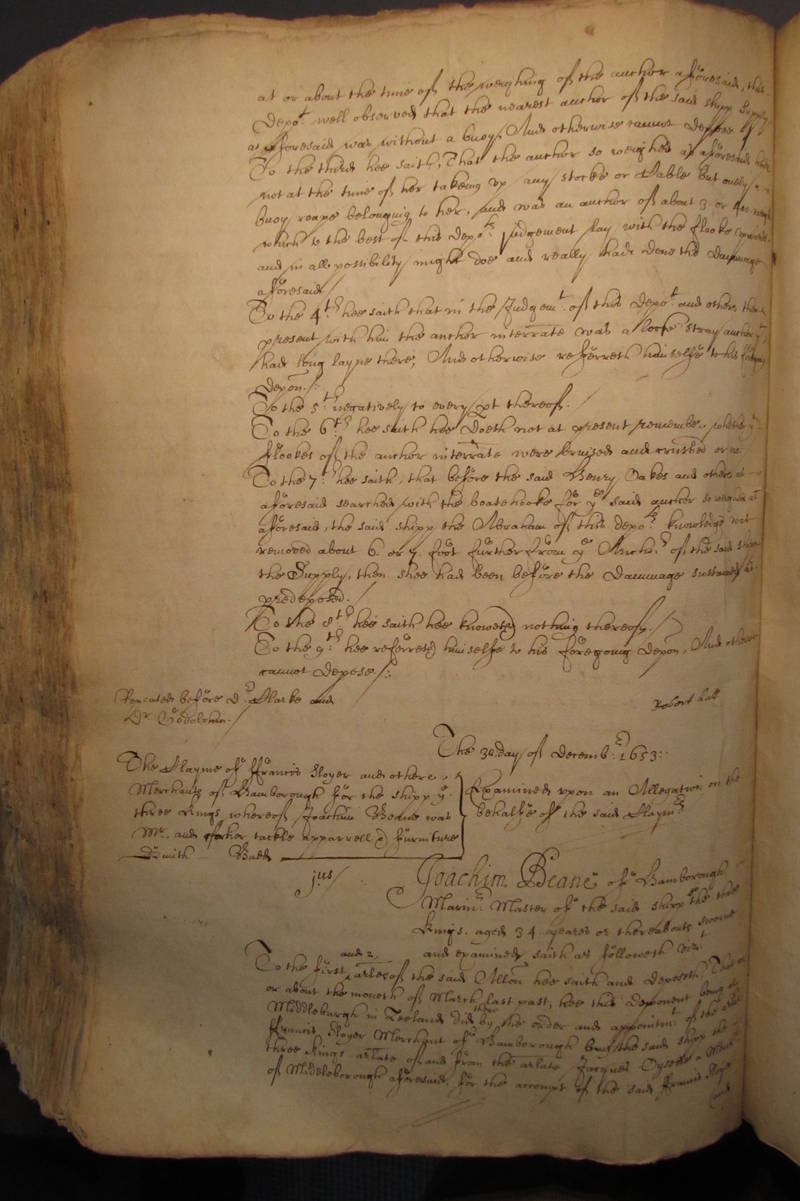 at or about the tyme of the weighing of the anchor aforesaid, this
Depo:t well observed that the nearest anchor of the said shipp Supply
as aforesaid was without a buoy, And otherwise cannot Depose./
To the third hee saith, That the anchor so weighed as aforesaid had
not at the tyme of her takeing up any stocke or Cable but onely a
buoy roape belonging to her, and was an anchor of about 3 or 4
which to the best of this Depo:ts Judgement lay with the flooke upwards
and in all possibility might doe and really had done the Dammage
aforesaid./
To the 4.th hee saith that in the Judgem:t of this Depo:t and others then
present with him the anchor interrate was a loose stray anchor
had long layne there, And otherwise referreth himselfe to his foregoing
Depon./.
To the 5.th negatively to every pt thereof./
To the 6.th hee saith hee doeth not at present remember whether y:e
flookes of the anchor interrate were bruised and crusted or no
To the 7.th hee saith, that before the said Henry Oakes and others
aforesaid searched with the boatehooke for y:e said anchor so weighed as
aforesaid, the said shipp the Abraham of this depo:ts knowledge was not
removed about 6 or 7 foot further from y:e Anch:r of the said shipp
the Supply, then shee had been before the Dammage sustained as
predeposed./
To the 8.th hee saith hee knoweth nothing thereof./
To the 9.th hee referreth himselfe to his foregoing Depon, And otherwise
cannot Depose./:
Repeated before D:r Clarke and
D:r Godolphin./
Robert hall
The 30. day of Decemb:r 1653:.
The Clayme of ffrancis Sloyer and others
Merchants of Hamborough for the shipp y:e
three Kings whereof Joachim Beane was
M:r and for her tackle apparrell & furniture
Smith Budd
Examined upon an Allegation on the
behalfe of the said Claym:rs
j:us/
Joachim Beane of Hamborough
Marin:r Master of the said shipp the three
Kings. aged 34 yeares or thereabouts sworne
and examined saith as followeth viz:t
and 2.
To the first arles of the said Allon hee saith and deposeth That in
or about the moneth of March last past, hee this Deponent being at
Middleburgh in Zeeland did by the order and appointm:t of the arlate
ffrancis Sloyer Merchant of Hamborough buy the said shipp the
three Kings arlate of and from the arlate Jacques Oyssel a Merch:t
of Middleborough aforesaid, for the accompt of the said ffrancis Sloyer
and